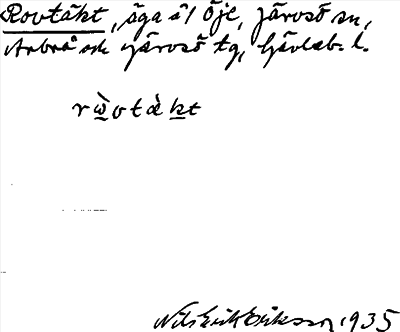 Rovtäkt, äga āl Öje, Järvsö sn,
Arbrå och Järvsö tg, Gävleb. l.
rὼ̲vtàk̲t
Nils Erik Eriksson 1935